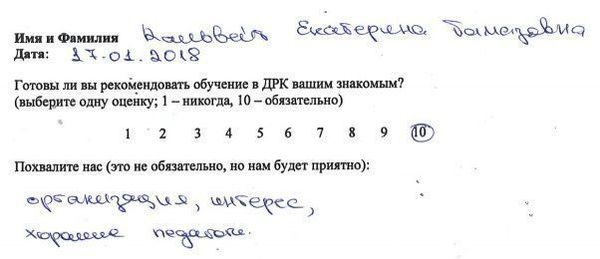 Имя и Фамилия Екатерина
Дата: 17.01.2018
Готовы ли вы рекомендовать обучение в ДРК вашим знакомым?
(выберите одну оценку; 1 – никогда, 10 – обязательно)
1 2 3 4 5 6 7 8 9 10
Похвалите нас (это не обязательно, но нам будет приятно):
организация, интерес,
хорошие педагоги.